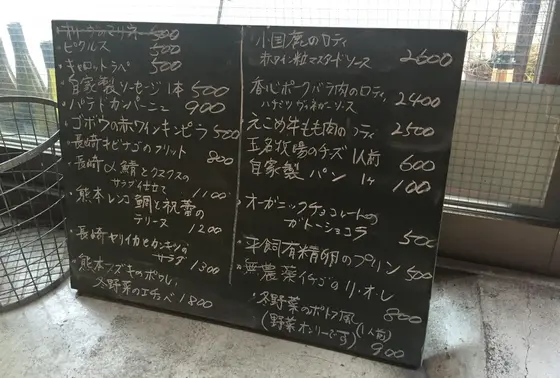 のマリネ 500
ピクルス 500
キャロットラペ 500
自家製ソーセージ1本 500
パテドカンパーニュ 900
ゴボウの赤ワインキンピラ 500
長崎キビナゴのフリット 800
長崎〆鯖とクスクスの
サラダ仕立て 1100
熊本レンコ鯛と祝蕾の
テリーヌ 1200
長崎ヤリイカとカンキツの
サラダ 1300
熊本スズキのポワレ、
冬野菜のエチュベ 1800
小国鹿のロティ
赤ワイン粒マスタードソース 2600
香心ポークバラ肉のロティ
ハチミツヴィネガーソース 2400
えこめ牛もも肉のロティ 2500
玉名牧場のチーズ 1人前 600
自家製パン 1ケ 100
オーガニックチョコレートの
ガトーショコラ 500
平飼有精卵のプリン 500
無農薬イチゴのリ・オ・レ
800
冬野菜のポトフ風
(野菜オンリーです) (1人前)
900